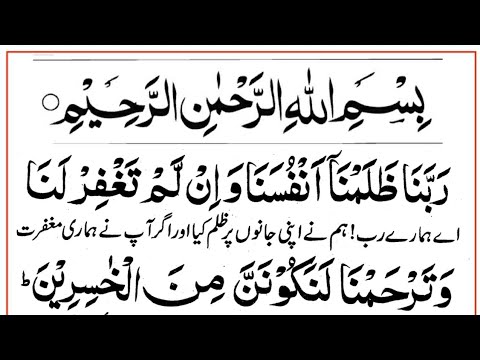 بِسْمِ اللهِ الرَّحْمٰنِ الرَّحِيْمِ ○
رَبَّنَا ظَلَمْنَآ اَنْفُسَنَا وَاِنْ لَّمْ تَغْفِرْ لَنَا
اے ہمارے رب! ہم نے اپنی جانوں پر ظلم کیا اور اگر آپ نے ہماری مغفرت
وَتَرْحَمْنَا لَنَكُوْنَنَّ مِنَ الْخٰسِرِيْنَ ؕ